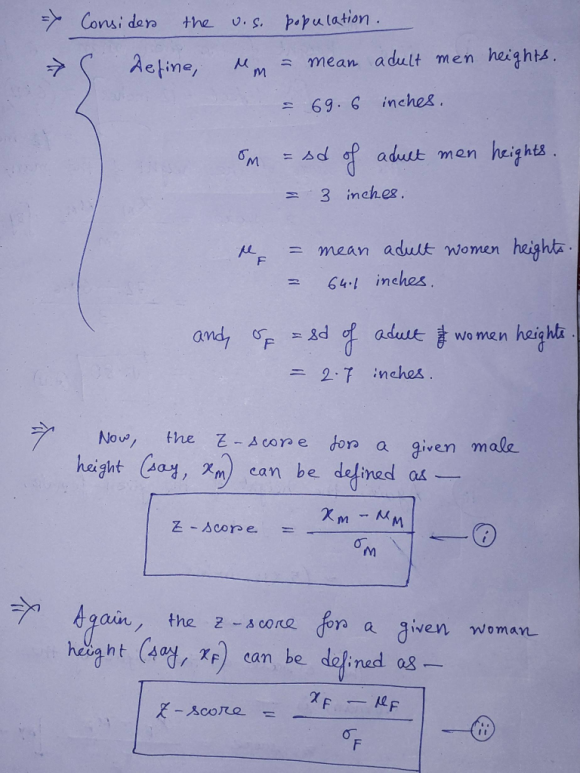 ⇒ Consider the U.S. population.
⇒ Define, μ_M = mean adult men heights.
= 69.6 inches.
σ_M = sd of adult men heights.
= 3 inches.
μ_F = mean adult women heights.
= 64.1 inches.
and, σ_F = sd of adult women heights.
= 2.7 inches.
⇒ Now, the Z-score for a given male
height (say, x_M) can be defined as —
Z-score = (x_M − μ_M) / σ_M — (i)
⇒ Again, the Z-score for a given woman
height (say, x_F) can be defined as —
Z-score = (x_F − μ_F) / σ_F — (ii)